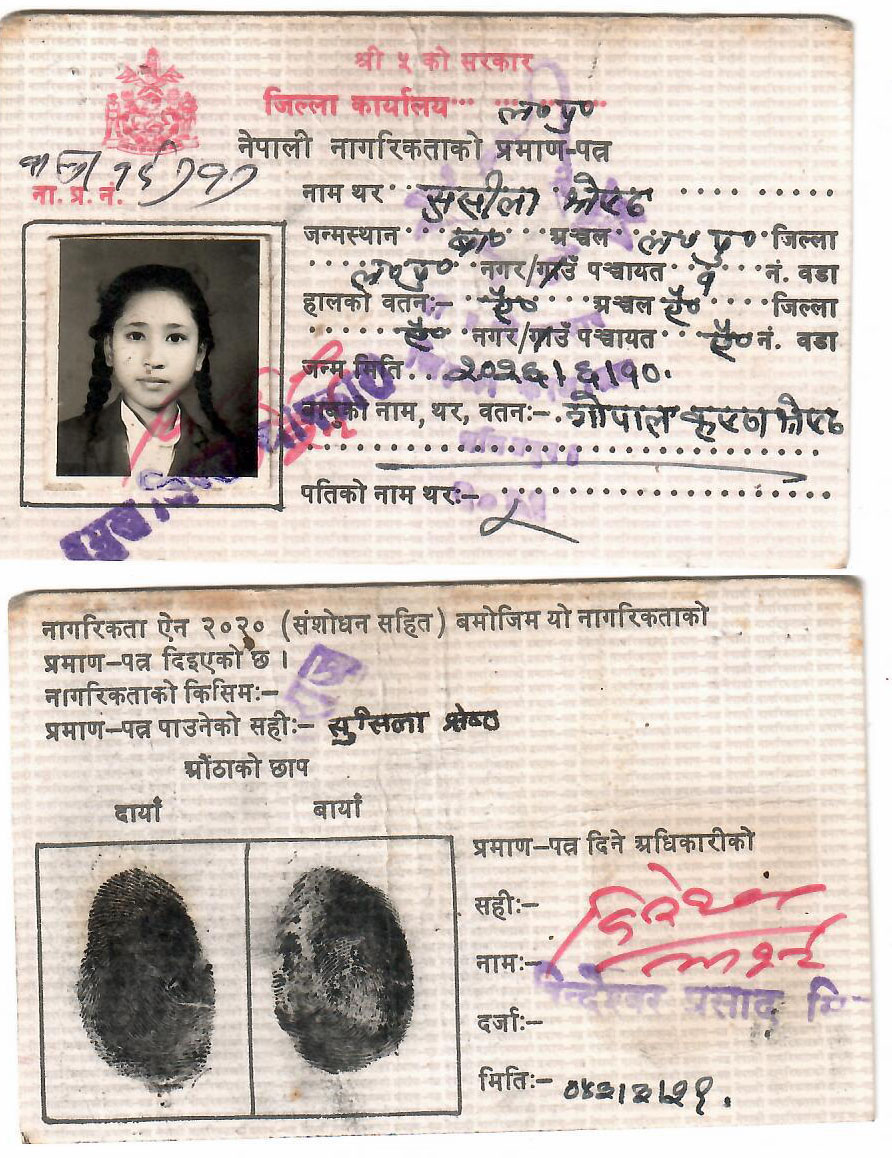 श्री ५ को सरकार
जिल्ला कार्यालय ल॰ पु॰
नेपाली नागरिकताको प्रमाण-पत्र
ना. प्र. नं.
नाम थर सुसीला श्रेष्ठ
जन्मस्थान बा॰ अञ्चल ल॰ पु॰ जिल्ला
ल॰ पु॰ नगर/गाउँ पञ्चायत नं. वडा
हालको वतनः- ऐ॰ अञ्चल ऐ॰ जिल्ला
ऐ॰ नगर/गाउँ पञ्चायत ऐ॰ नं. वडा
जन्म मिति २०२६।६।१०
बाबुको नाम, थर, वतनः- गोपाल कृष्ण श्रेष्ठ
पतिको नाम थरः-
नागरिकता ऐन २०२० (संशोधन सहित) बमोजिम यो नागरिकताको
प्रमाण-पत्र दिइएको छ ।
नागरिकताको किसिमः-
प्रमाण-पत्र पाउनेको सहीः- सुसिला श्रेष्ठ
औंठाको छाप
दायाँ बायाँ
प्रमाण-पत्र दिने अधिकारीको
सहीः-
नामः-
प्रसाद
दर्जाः-
मितिः-